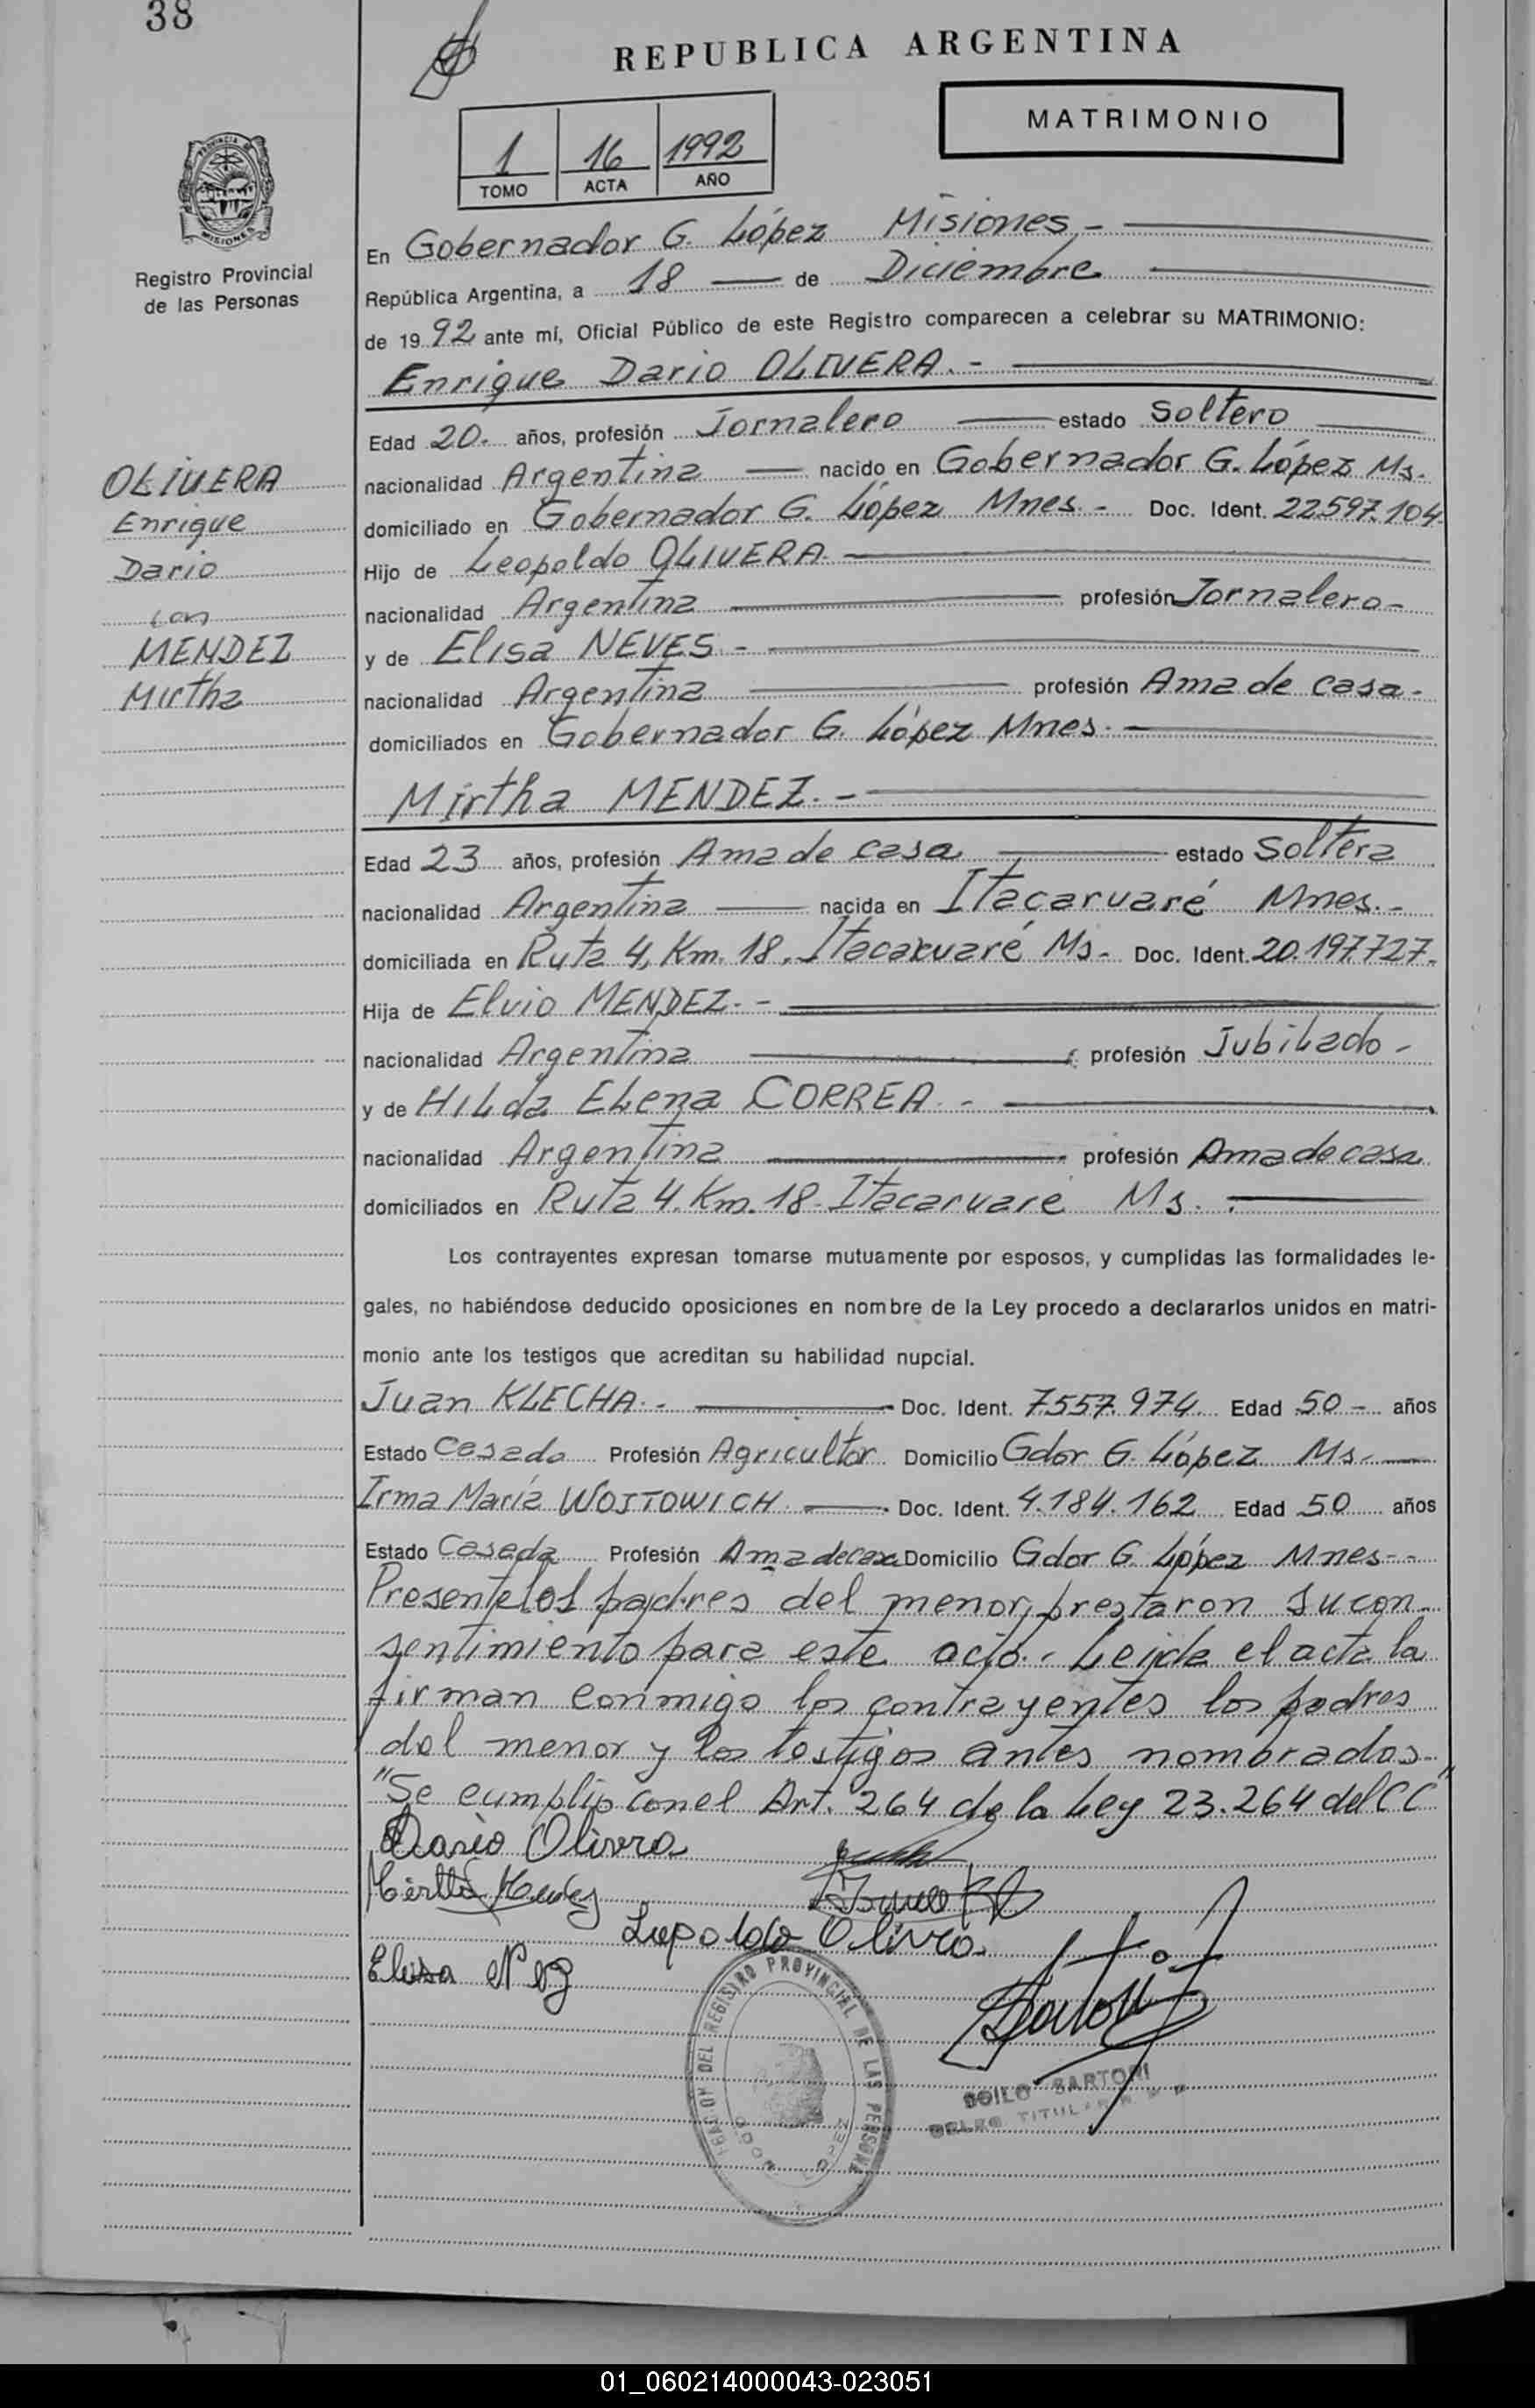 38
REPUBLICA ARGENTINA
MATRIMONIO
1 16 1992
TOMO ACTA AÑO
PROVINCIA DE MISIONES
Registro Provincial
de las Personas
En Gobernador G. López Misiones.-
República Argentina, a 18 de Diciembre
de 1992 ante mí, Oficial Público de este Registro comparecen a celebrar su MATRIMONIO:
Enrique Dario OLIVERA.-
Edad 20. años, profesión Jornalero estado Soltero
nacionalidad Argentina nacido en Gobernador G. López Ms.
domiciliado en Gobernador G. López Mnes.- Doc. Ident. 22597.104
Hijo de Leopoldo OLIVERA.
nacionalidad Argentina profesión Jornalero-
y de Elisa NEVES-
nacionalidad Argentina profesión Ama de casa-
domiciliados en Gobernador G. López Mnes.-
OLIVERA
Enrique
Dario
con
MENDEZ
Mirtha
Mirtha MENDEZ.-
Edad 23 años, profesión Ama de casa estado Soltera
nacionalidad Argentina nacida en Itacaruaré Mnes.-
domiciliada en Ruta 4, Km. 18. Itacaruaré Ms- Doc. Ident. 20.197.727.
Hija de Elvio MENDEZ.-
nacionalidad Argentina profesión Jubilado-
y de Hilda Elena CORREA.-
nacionalidad Argentina profesión Ama de casa
domiciliados en Ruta 4. Km. 18- Itacaruaré Ms.
Los contrayentes expresan tomarse mutuamente por esposos, y cumplidas las formalidades le-
gales, no habiéndose deducido oposiciones en nombre de la Ley procedo a declararlos unidos en matri-
monio ante los testigos que acreditan su habilidad nupcial.
Juan KLECHA.- Doc. Ident. 7.557.974 Edad 50- años
Estado Casado Profesión Agricultor Domicilio Gdor G. López Ms.
Irma María WOJTOWICH Doc. Ident. 4.184.162 Edad 50 años
Estado Casada Profesión Ama de casa Domicilio Gdor G. López Mnes-
Presente los padres del menor, prestaron su con-
sentimiento para este acto. Leida el acta la
firman conmigo los contrayentes los padres
del menor y los testigos antes nombrados-
"Se cumplio con el Art. 264 de la Ley 23.264 del CC"
Dario Olivera
Mirtha Mendez
Leopoldo Olivera
Elisa
DEL REGISTRO PROVINCIAL DE LAS PERSONAS
GDOR LOPEZ
SARTORI
TITULAR
01_060214000043-023051